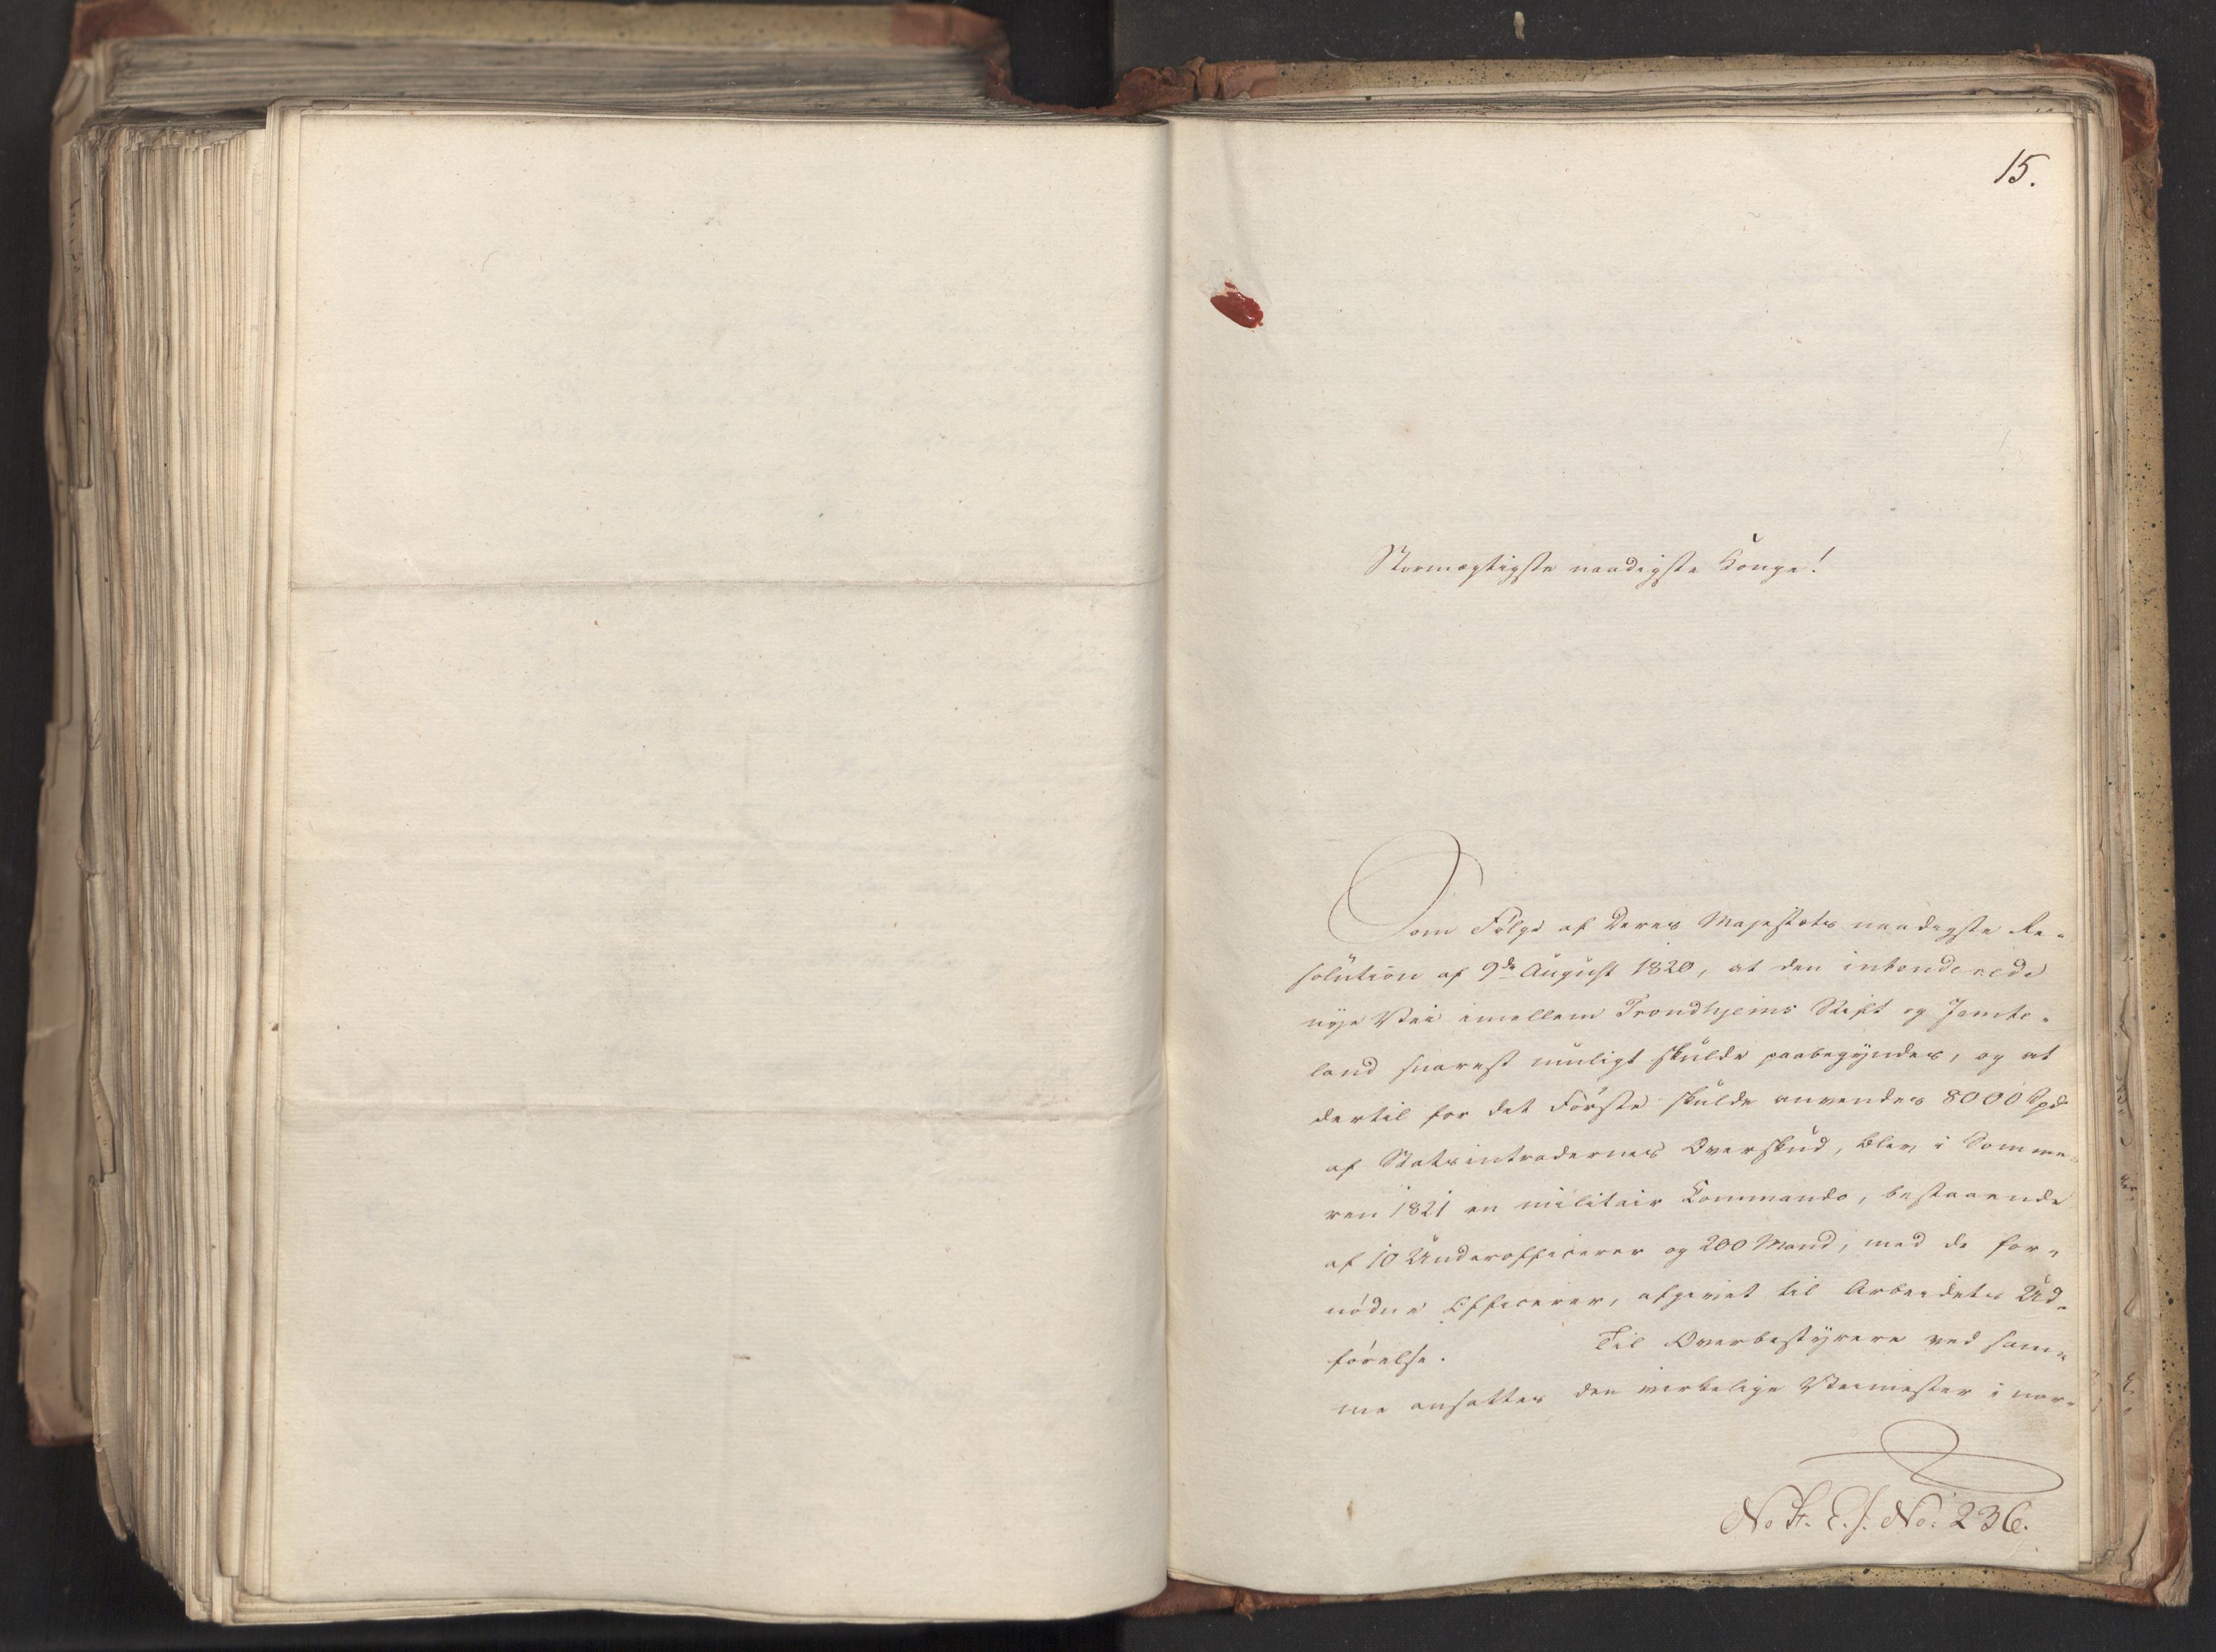 15.
Stormægtigste naadigste Konge!
Som Følge af Deres Majestæts naadigste Re-
solution af 9de August 1820, at den intenderede
nye Vei imellem Trondhjems Stift og Jemte-
land snarest muligt skulde paabegyndes, og at
dertil for det Første skulde anvendes 8000 Spd
af Statsintradernes Overskud, blev i Somme-
ren 1821 en militair Commando, bestaaende
af 10 Underofficerer og 200 Mand, med de for-
nødne Officerer, afgivet til Arbeidets Ud-
førelse. Til Overbestyrere ved sam-
me ansattes den virkelige Veimester i nor-
No 236.